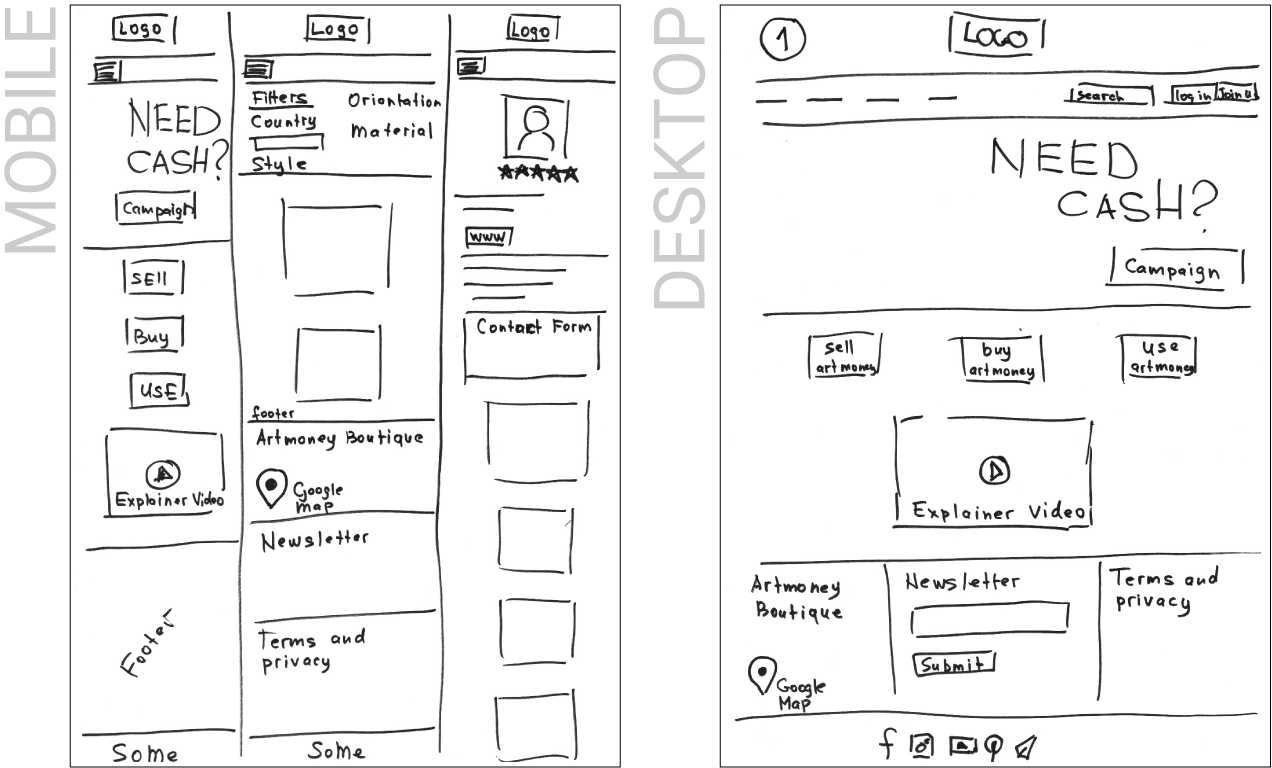 MOBILE
Logo
NEED
CASH?
Campaign
SEll
Buy
USE
Explainer Video
Footer
Some
Logo
Filters
Orientation
Country
Material
Style
footer
Artmoney Boutique
Google
map
Newsletter
Terms and
privacy
Some
Logo
★★★★★
www
Contact Form
DESKTOP
1
LOGO
search
log in
Join us
NEED
CASH?
Campaign
sell
artmoney
buy
artmoney
use
artmoney
Explainer Video
Artmoney
Boutique
Google
Map
Newsletter
Submit
Terms and
privacy
f